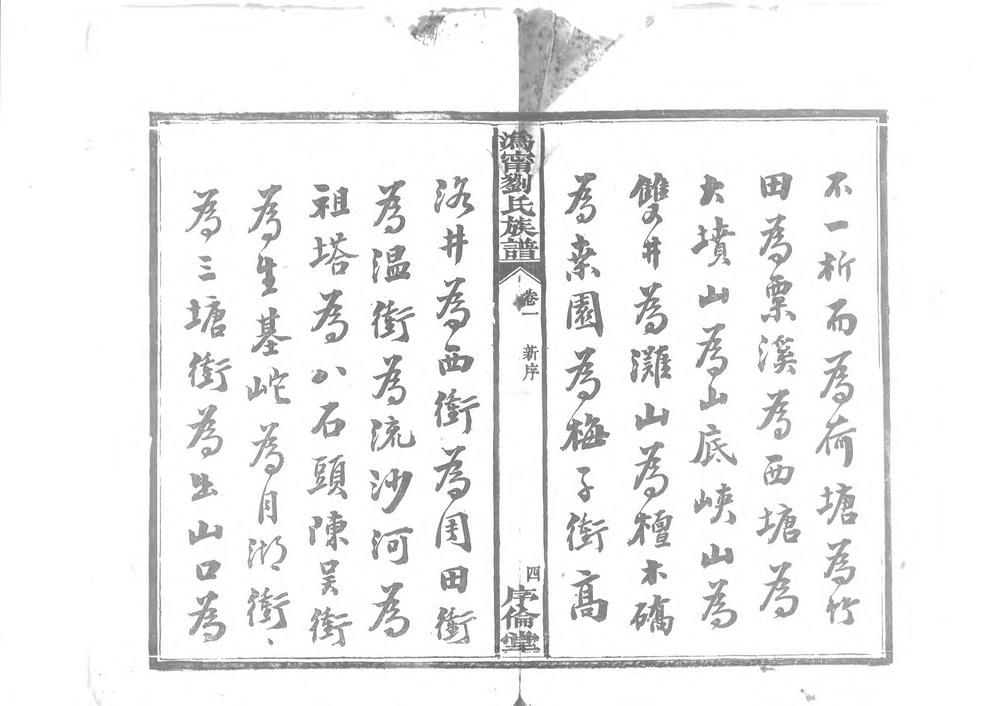 不一析而為荷塘為竹
田為粟溪為西塘為
大墳山為山底峽山為
雙井為灘山為檀木礄
為柰園為梅子衝高
溈甯劉氏族譜
卷一
新序
四
序倫堂
洛井為西衝為周田衝
為温衝為流沙河為
祖塔為八石頭陳吴衝
為生基坨為月湖衝、
為三塘衝為出山口為